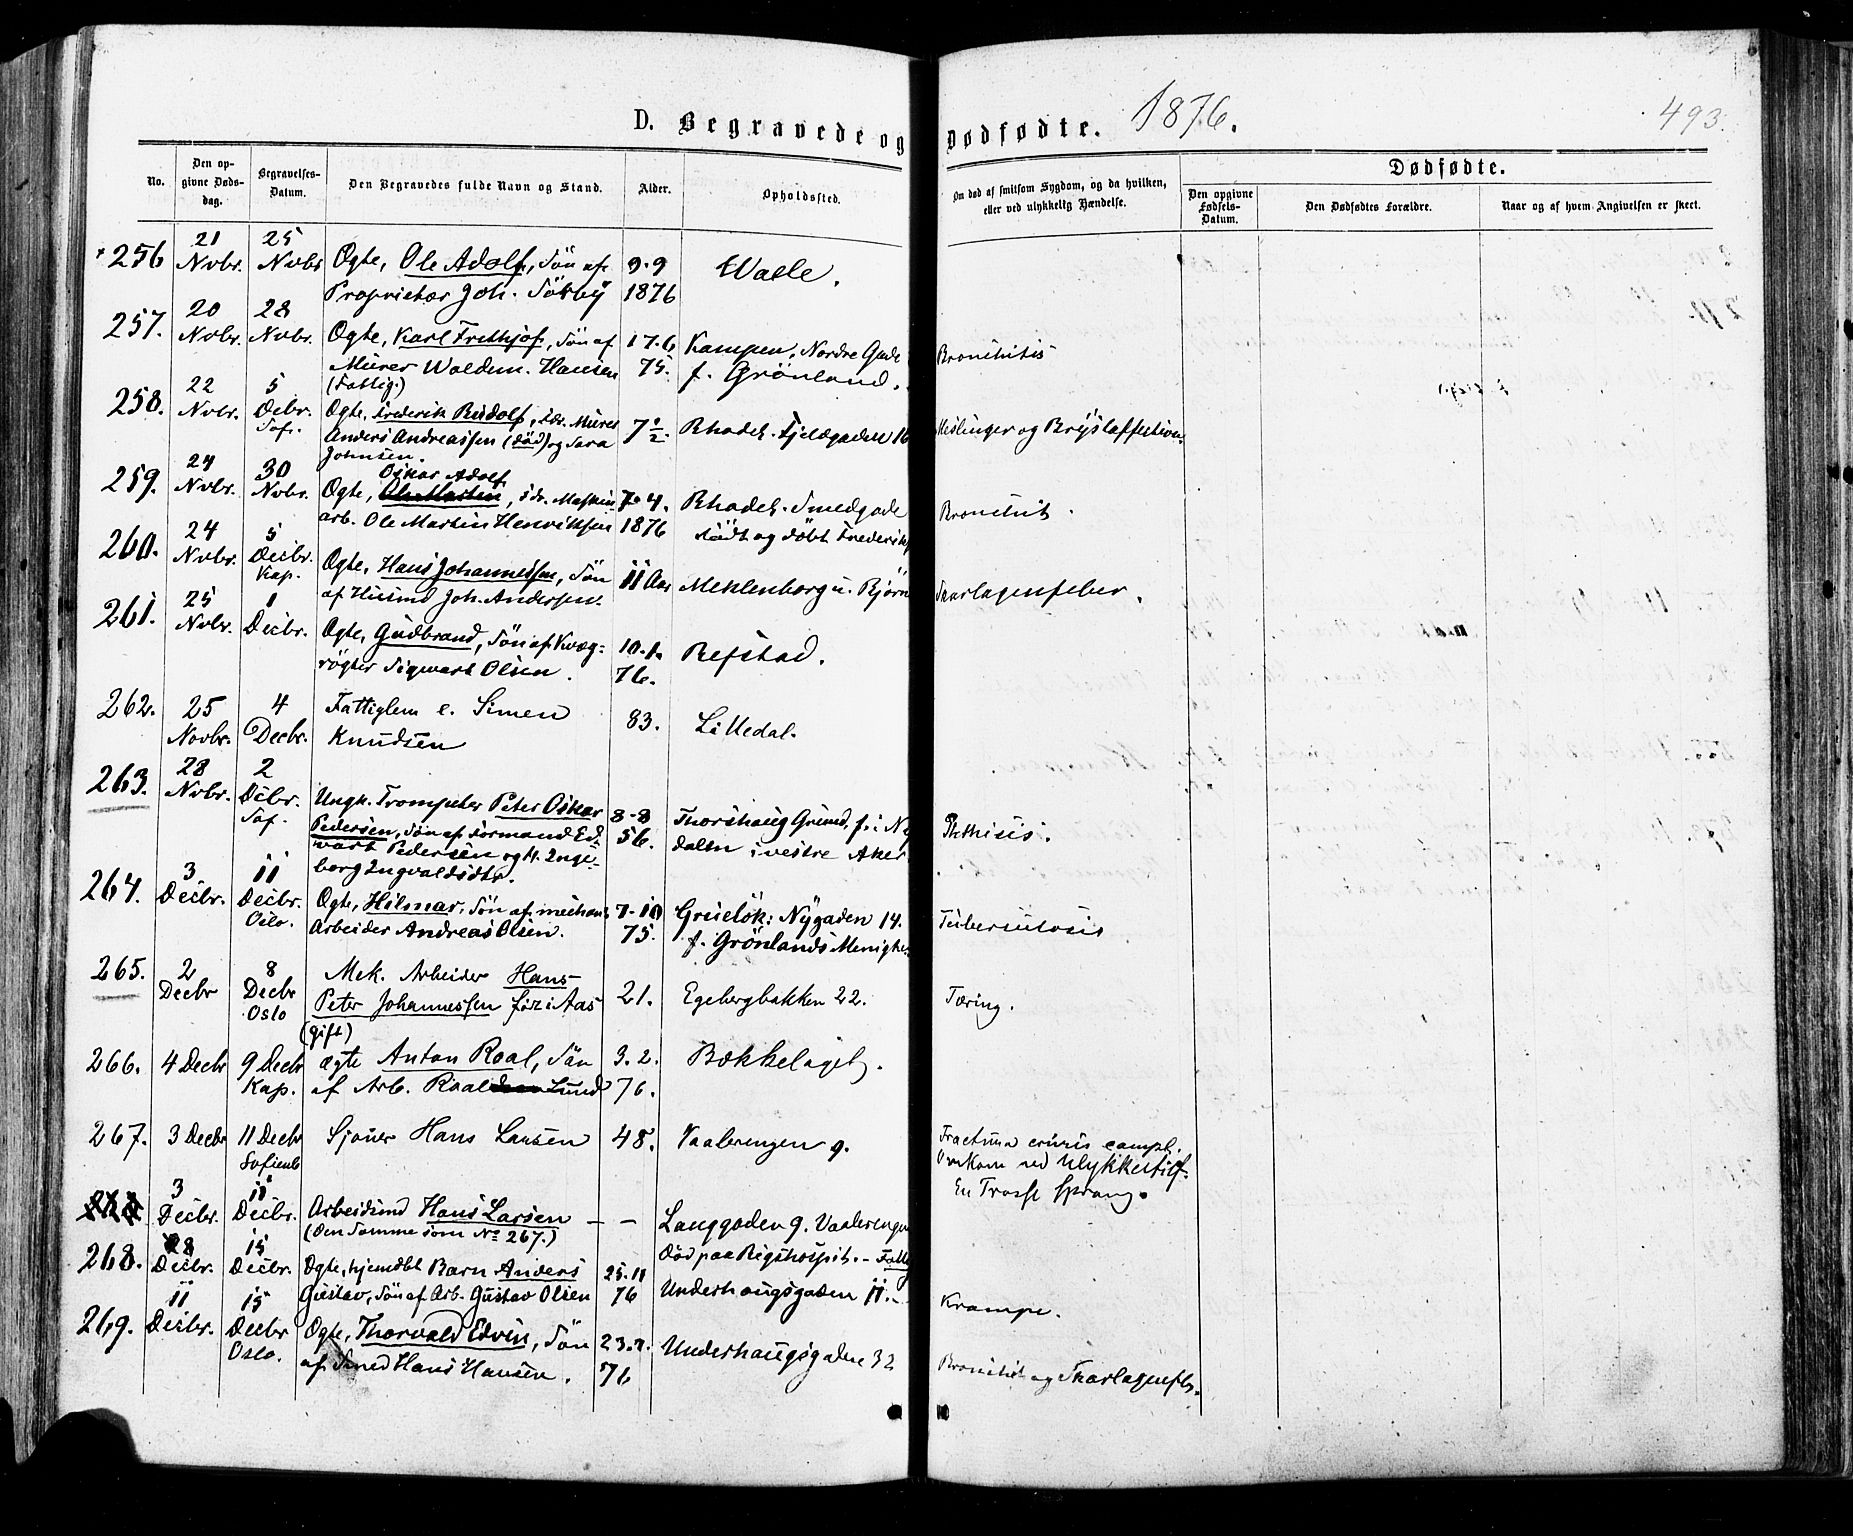 D. Begravede og Dødfødte. 1876. 493.
No. Den opgivne Dødsdag. Begravelses-Datum. Den Begravedes fulde Navn og Stand. Alder. Opholdssted. Om død af smitsom Sygdom, og da hvilken, eller ved ulykkelig Hændelse.
Dødfødte.
Den opgivne Fødsels-Datum. Den Dødfødtes Forældre. Naar og af hvem Angivelsen er skeet.
256 21 Nvbr. 25 Nvbr Ægte, Ole Adolf, Sön af 9-9
Proprietær Joh. 1876
257. 20 Nvbr. 28 Nvbr. Ægte, Karl Frithjof, Sön af 17-6 Kampen, Nordre Gade Bronchitis
Murer Waldem. Hansen 75. f. Grönland.
(Fattig.)
258. 22 Nvbr. 5 Decbr. Sof. Ægte, Frederik Rudolf, Murer 7 1/2 Rhodel. Fjeldgaden 16 Meslinger og Brystaffektion.
Anders Andreassen (död) og Sara
Johnsen.
259. 24 Nvbr. 30 Nvbr. Oskar Adolf
Ægte, Ole Martin, Maskin- 7-4. Rhodel. Smedgade Bronchit.
arb. Ole Martin Henriksen 1876 födt og döbt Frederiks
260. 24 Nvbr. 5 Decbr. Kap. Ægte, Hans Johannessen, Sön 11 Aar Meklenborg u. Bjørn Skarlagenfeber.
af Husmd Joh. Andersen.
261. 25 Nvbr. 1 Decbr. Ægte, Gudbrand, Sön af Kvæg- 10-1. Refstad.
røgter Sigwart Olsen. 76.
262. 25 Novbr. 4 Decbr. Fattiglem e. Simen 83. Lilledal.
Knudsen
263. 28 Nvbr. 2 Dcbr. Sof. Ungk. Trompeter Peter Oskar 8-8 Thorshaug Grund, f. i Ny Phthisis.
Pedersen, Sön af Formand Ed- 56. dalen i vestre Aker
vart Pedersen og H. Inge-
borg Ingvaldsdtr.
264. 3 Decbr. 11 Decbr. Oslo. Ægte, Hilmar, Sön af mechan. 7-10 Gruelök: Nygaden 14. Tuberculosis
Arbeider Andreas Olsen. 75. f. Grönlands Menighed
265. 2 Decbr 8 Decbr Oslo Mek. Arbeider Hans 21. Egebergbakken 22. Tæring.
Peter Johannessen föd i Aas
(gift)
266. 4 Decbr 9 Decbr Kap. ægte Anton Roal, Sön 3.2. Bækkelaget.
af Arb. Roal Lund 76.
267. 3 Decbr 11 Decbr Sofienb Sjouer Hans Larsen 48. Vaalerengen 9. Fractura cruris compl.
Omkom ved Ulykkestilf.
En Trosse sprang.
3 Decbr. 11 Decbr. Arbeidsmd Hans Larsen — — Langgaden 9. Vaalerengen
(den Samme som No 267.) död paa Rigshospit.
268. 8 Decbr. 15 Decbr. Ægte, hjemdbt Barn Anders 25-11 Underhaugsgaden 11. Krampe.
Gustav, Sön af Arb. Gustav Olsen 76
269. 11 Decbr. 15 Decbr Oslo. Ægte, Thorvald Edvin, Sön 23-7. Underhaugsgaden 32 Bronchit og Skarlagenfb.
af Smed Hans Hansen. 76